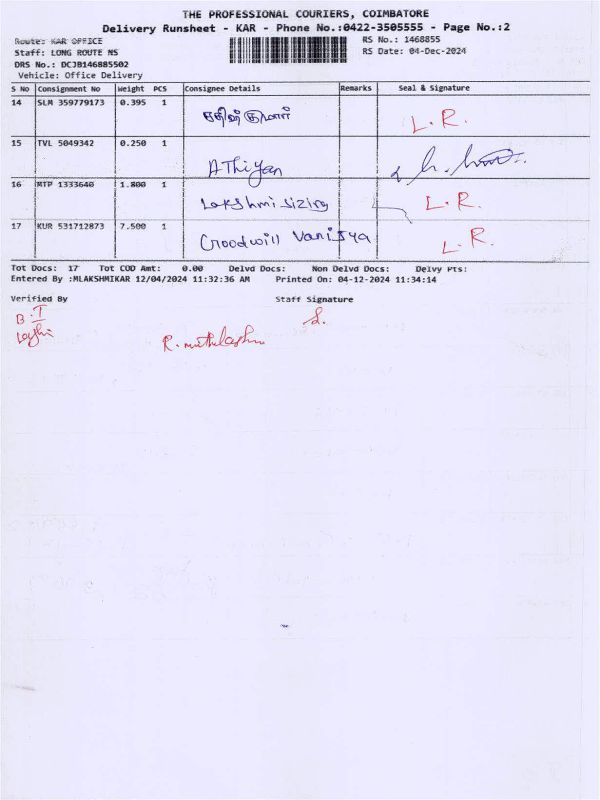 THE PROFESSIONAL COURIERS, COIMBATORE
Delivery Runsheet - KAR - Phone No.:0422-3505555 - Page No.:2
Route: KAR OFFICE
RS No.: 1468855
Staff: LONG ROUTE NS
RS Date: 04-Dec-2024
DRS No.: DCJB146885502
Vehicle: Office Delivery
S No Consignment No Weight PCS Consignee Details Remarks Seal & Signature
14 SLM 359779173 0.395 1 கதிஷ்குமார் L.R.
15 TVL 5049342 0.250 1 AThiyan
16 MTP 1333640 1.800 1 Lakshmi sizing L.R.
17 KUR 531712873 7.500 1 Goodwill Vanijya L.R.
Tot Docs: 17 Tot COD Amt: 0.00 Delvd Docs: Non Delvd Docs: Delvy Pts:
Entered By :MLAKSHMIKAR 12/04/2024 11:32:36 AM Printed On: 04-12-2024 11:34:14
Verified By Staff Signature
B.T
S.